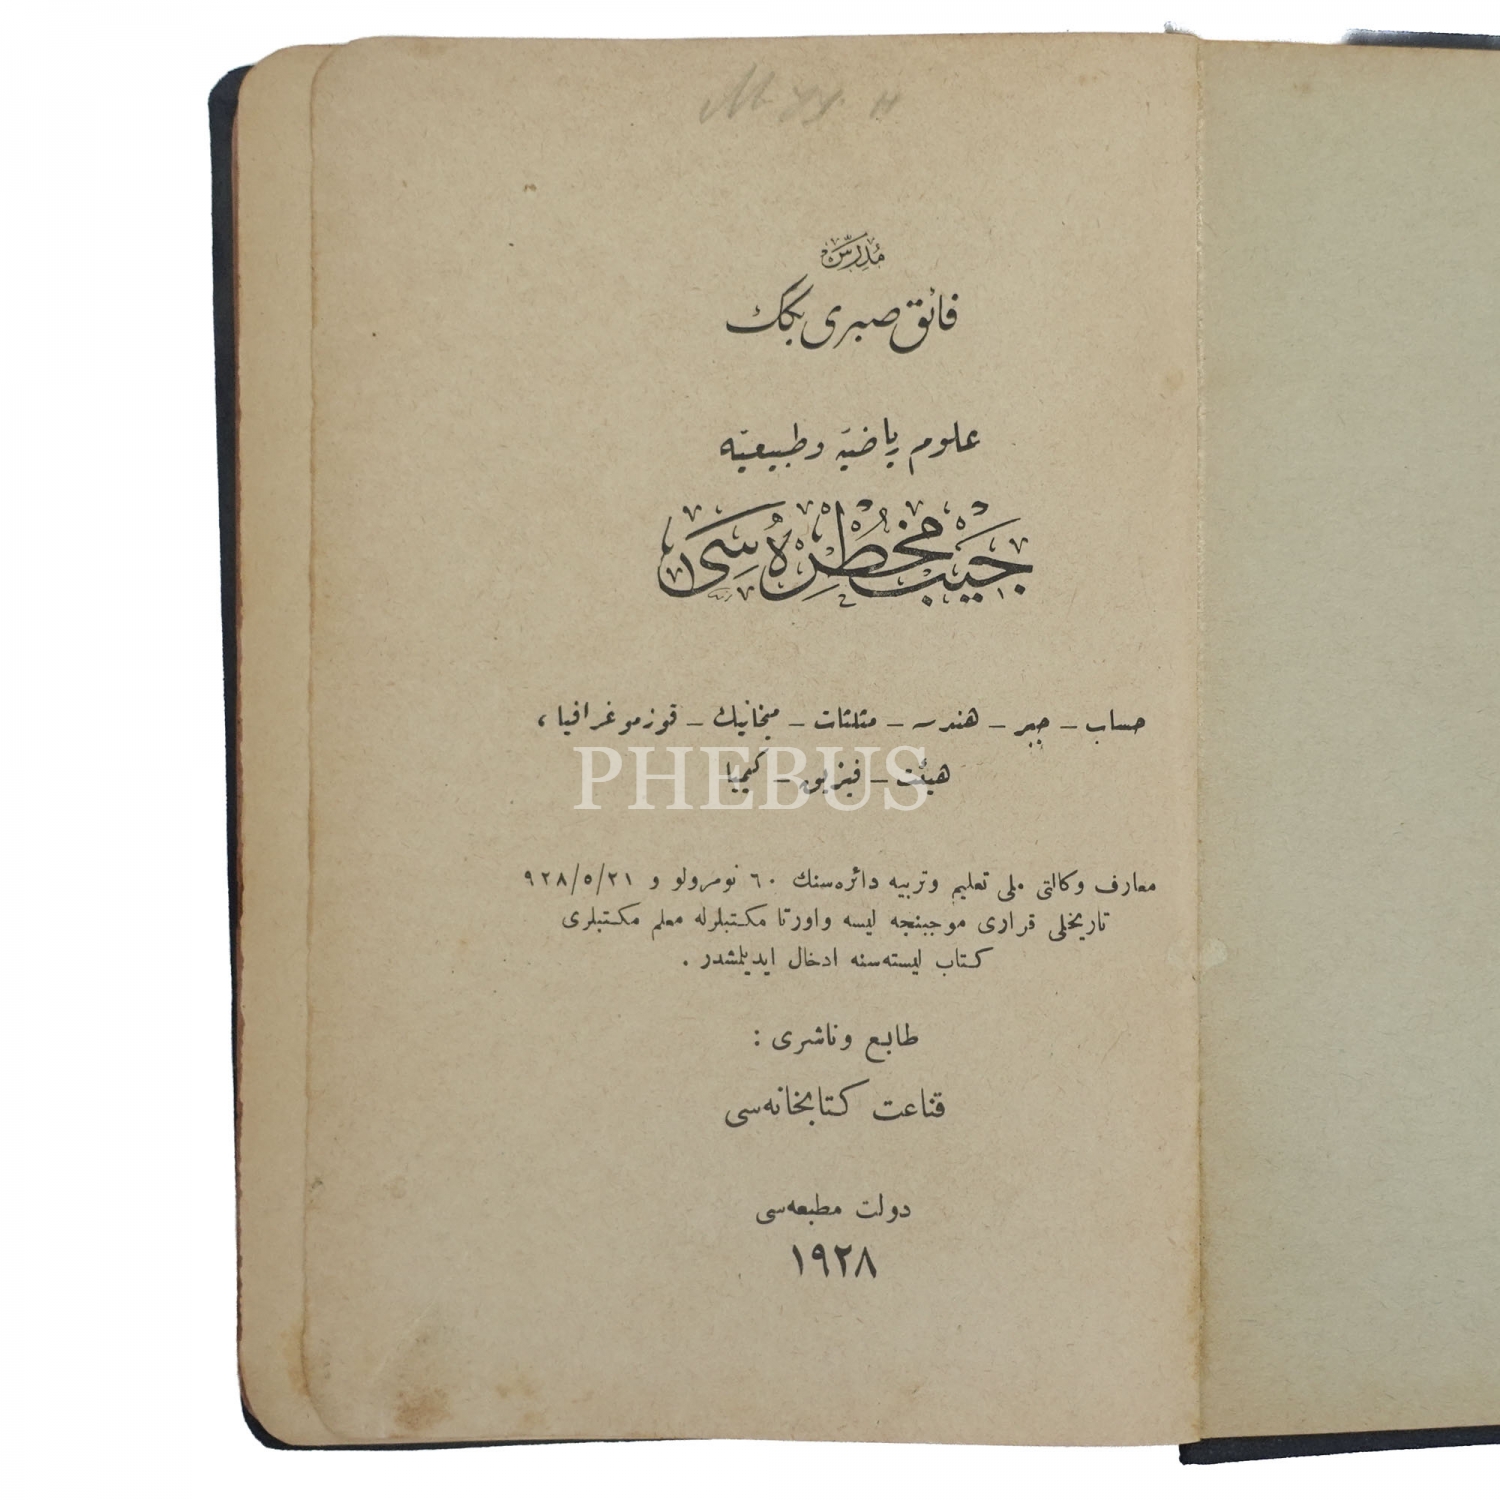 مُدرّس
فائق صبری بكك
علوم ریاضیّه و طبیعیّه
جَیب مُخطرهسی
حساب – جبر – هندسه – مثلثات – میخانیك – قوزموغرافیا ،
هیئت – فیزیق – کیمیا
PHEBUS
معارف وكالتی ملی تعلیم وتربیه دائرهسنك ٦٠ نومرولو و ٩٢٨/٥/٢١
تاریخلی قراری موجبنجه لیسه واورتا مكتبلرله معلم مكتبلری
كتاب لیستهسنه ادخال ایدیلمشدر .
طابع وناشری :
قناعت كتابخانهسی
دولت مطبعهسی
١٩٢٨